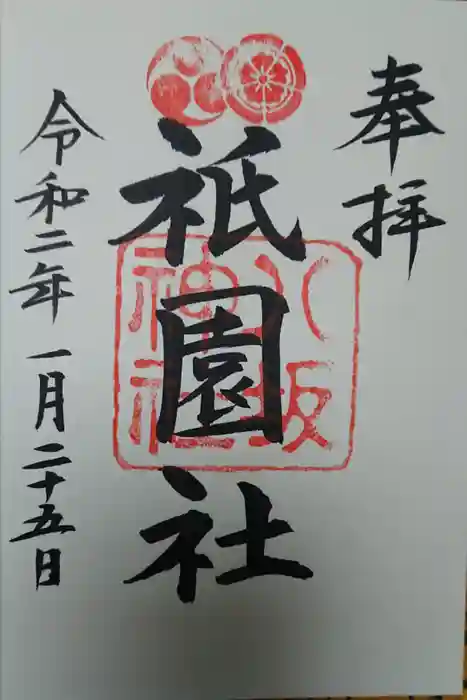 奉拝
祇園社
八坂
神社
令和二年 一月二十五日